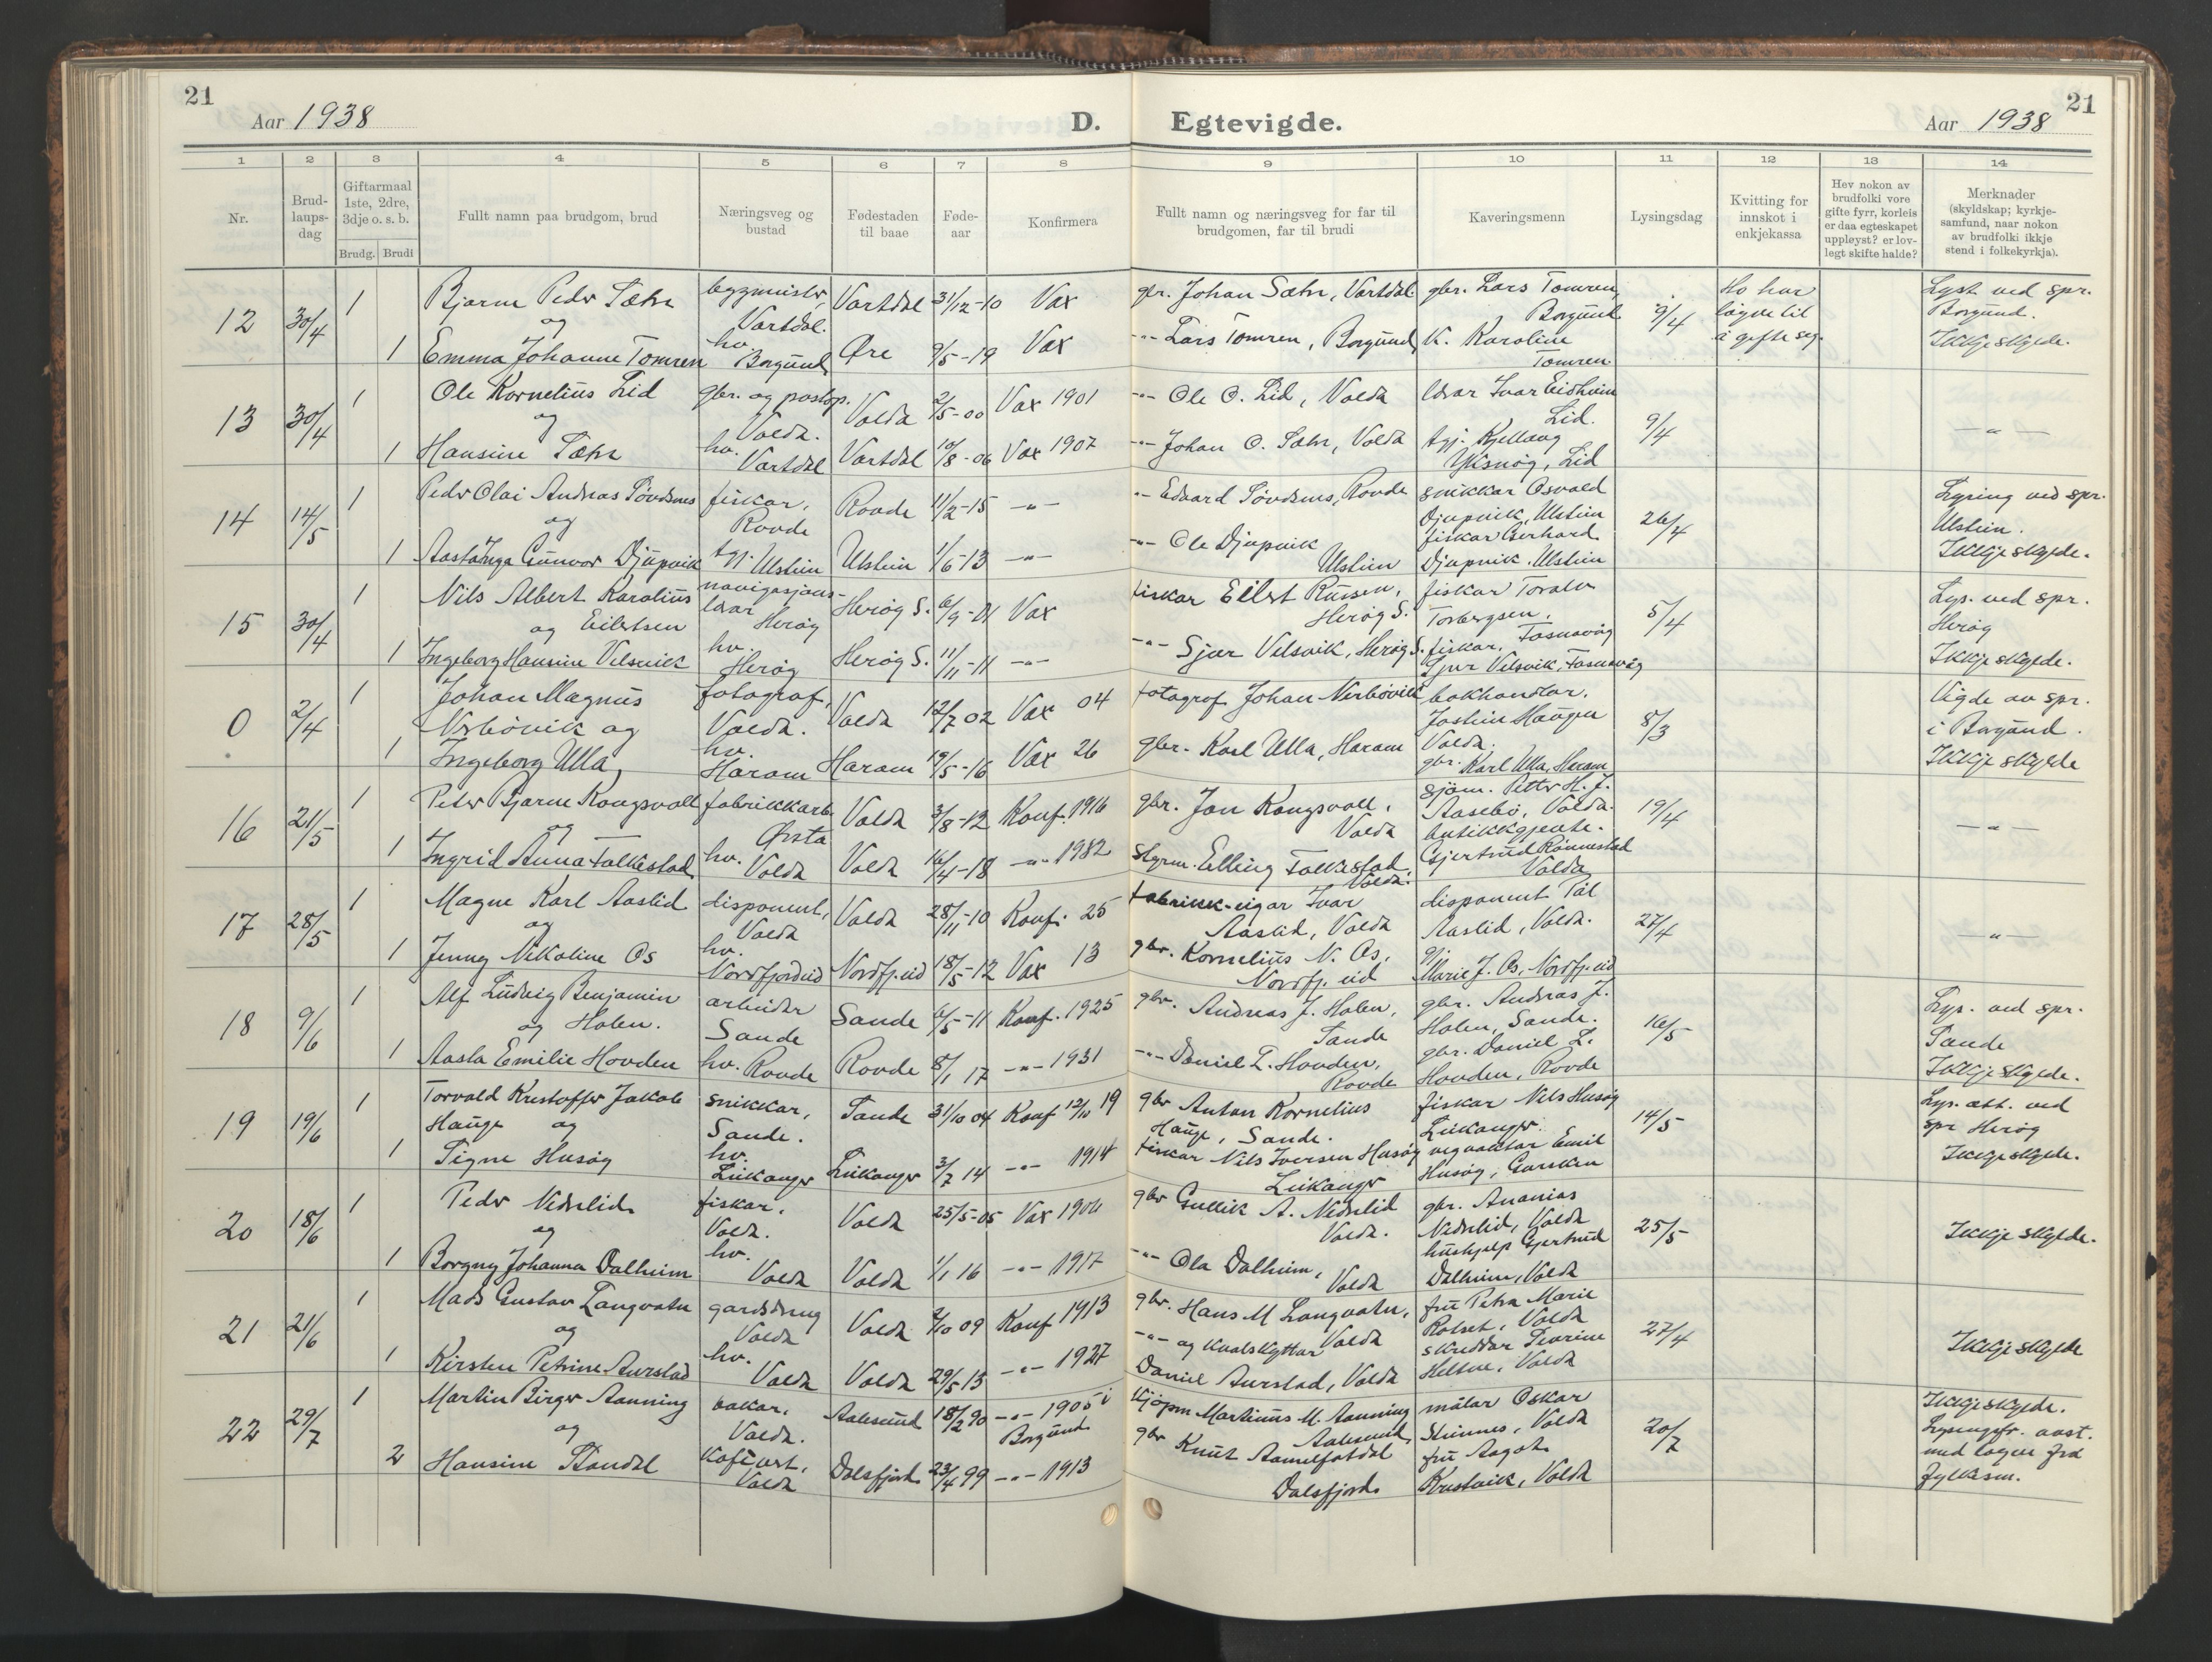 21
Aar 1938
D.
Egtevigde.
Aar 1938
21
1 2 3 4 5 6 7 8 9 10 11 12 13 14
Nr.
Brud-
laups-
dag
Giftarmaal
1ste, 2dre,
3dje o. s. b.
Brudg. Brudi
Fullt namn paa brudgom, brud
Næringsveg og
bustad
Fødestaden
til baae
Føde-
aar
Konfirmera
Fullt namn og næringsveg for far til
brudgomen, far til brudi
Kaveringsmenn
Lysingsdag
Kvitting for
innskot i
enkjekassa
Hev nokon av
brudfolki vore
gifte fyrr, korleis
er daa egteskapet
uppløyst? er lov-
legt skifte halde?
Merknader
(skyldskap; kyrkje-
samfund, naar nokon
av brudfolki ikkje
stend i folkekyrkja).
12 30/4 1 Bjarne Peder Sætre byggmeister, Vartdal 31/12-10 Vax gbr. Johan Sætre, Vartdal gbr. Lars Tomren, 9/4 Ho har Lyst ved spr.
og Vartdal. Borgund løgve til Borgund.
1 Emma Johanne Tomren hv. Borgund Øre 9/5-19 Vax -"- Lars Tomren, Borgund K. Karoline å gifte seg. Ikkje skylde.
Tomren
13 30/4 1 Ole Kornelius Lid gbr. og postop. Volda 2/5-00 Vax 1901 -"- Ole O. Lid, Volda lærar Ivar Eidheim 9/4 -"-
og Volda. Lid.
1 Hansine Sætre hv. Vartdal Vartdal 10/8-06 Vax 1907 -"- Johan O. Sætre, Volda tgj. Kjellaug
Lid
14 14/5 1 Peder Olai Andreas Søvdsnes fiskar, Rovde 11/2-15 -"- -"- Edvard Søvdsnes, Rovde snikkar Osvald 26/4 Lysing ved spr.
og Rovde Djupvik, Ulstein Ulstein.
1 Aasta Inga Gunvor Djupvik tgj. Ulstein Ulstein 1/6-13 -"- -"- Ole Djupvik fiskar Gerhard Ikkje skylde.
Ulstein Djupvik, Ulstein
15 30/4 1 Nils Albert Karolius navigasjons- Herøy S. 6/9-01 Vax fiskar Eilert Rusen, fiskar Toralv 5/4 Lys. ved spr.
og Eilertsen lærar Herøy Herøy S. Torbergsen, Herøy
1 Ingeborg Hansine Velsvik hv. Herøy S. 11/11-11 -"- -"- Sjur Velsvik, Herøy S. fiskar, Fosnavåg Ikkje skylde.
Herøy Sjur Velsvik, Fosnavåg
0 2/4 1 Johan Magnus fotograf, Volda 12/7 02 Vax 04 fotograf Johan Nerbøvik bokhandlar. 8/3 Vigde av spr.
Nerbøvik og Volda. Jostein Haugen i Borgund.
1 Ingeborg Ulla hv. Haram Haram 19/5-16 Vax 26 gbr. Karl Ulla, Haram Volda. Ikkje skylde
gbr. Karl Ulla, Haram
16 21/5 1 Peter Bjarne Kongsvoll fabrikkarb. Volda 3/8-12 Konf. 1916 gbr. Jon Kongsvoll, sjøm. Petter H. J. 19/4 -"-
og Ørsta Volda Aasebø, Volda.
1 Ingrid Anna Folkestad hv. Volda Volda 16/4-18 -"- 1932 styrm. Elling Folkestad, butikkgjente.
Volda. Gjertrud Rønnestad
Volda
17 28/5 1 Magne Karl Aaslid disponent, Volda 28/11-10 Konf. 25 fabrikk-eigar Ivar disponent Pål 27/4 -"-
og Volda Aaslid, Volda Aaslid, Volda.
1 Jenny Nikoline Os hv. Nordfjordeid Nordfj.eid 18/5-12 Vax 13 gbr. Kornelius N. Os, gj.
Nordfj.eid Marie J. Os, Nordfj.eid
18 9/6 1 Alf Ludvig Benjamin arbeidar Sande 6/5-11 Konf. 1925 gbr. Andreas J. Holen, gbr. Andreas J. 16/5 Lys. ved spr.
og Holen. Sande Sande Holen, Sande. Sande
1 Aasta Emilie Hovden hv. Rovde Rovde 8/1 17 -"- 1931 -"- Daniel L. Hovden, gbr. Daniel L. Ikkje skylde.
Rovde Hovden, Rovde
19 19/6 1 Torvald Kristoffer Jakob snikkar, Sande 31/10 04 Konf 12/10 19 gbr Anton Kornelius fiskar Nils Husøy 14/5 Lys. att. ved
Hauge og Sande. Hauge, Sande. Leikanger. spr Herøy
1 Signe Husøy hv. Leikanger Leikanger 3/7 14 -"- 1914 fiskar Nils Iversen Husøy vegvaktar Emil Ikkje skylde.
Leikanger Husøy, Gursken
20 18/6 1 Peder Nedrelid fiskar. Volda 25/5-05 Vax 1906 gbr Gullik A. Nedrelid gbr. Ananias 25/5 Ikkje skylde.
og Volda. Volda. Nedrelid, Volda
1 Borgny Johanna Dalheim hv. Volda Volda 1/1 16 -"- 1917 -"- Ola Dalheim, hushjelp Gjertrud
Volda Dalheim, Volda
21 21/6 1 Mads Gustav Langvatn gardsdreng Volda 2/10 09 Konf 1913 gbr. Hans M Langvatn, fru Petra Marie 27/4 Ikkje skylde
og Volda Volda Rotset, Volda
1 Kirsten Petrine Aurstad hv. Volda Volda 29/5 13 -"- 1927 -"- og kvalskyttar skreddar Severine
Daniel Aurstad, Volda Helset, Volda
22 29/7 1 Martin Birger Aanning bakar, Aalesund 18/2 90 -"- 1905 i kjøpm Martinus M. Aanning målar Oskar 20/7 Ikkje skylde.
og Volda. Borgund Aalesund Steinnes, Volda Lysingsfr. avst.
2 Hansine Standal Kafévert, Dalsfjord 23/4 99 -"- 1913 gbr Knut Aamelfotdal fru Aagot med løgve frå
Volda Dalsfjord Krusvik, Volda fylkesm.